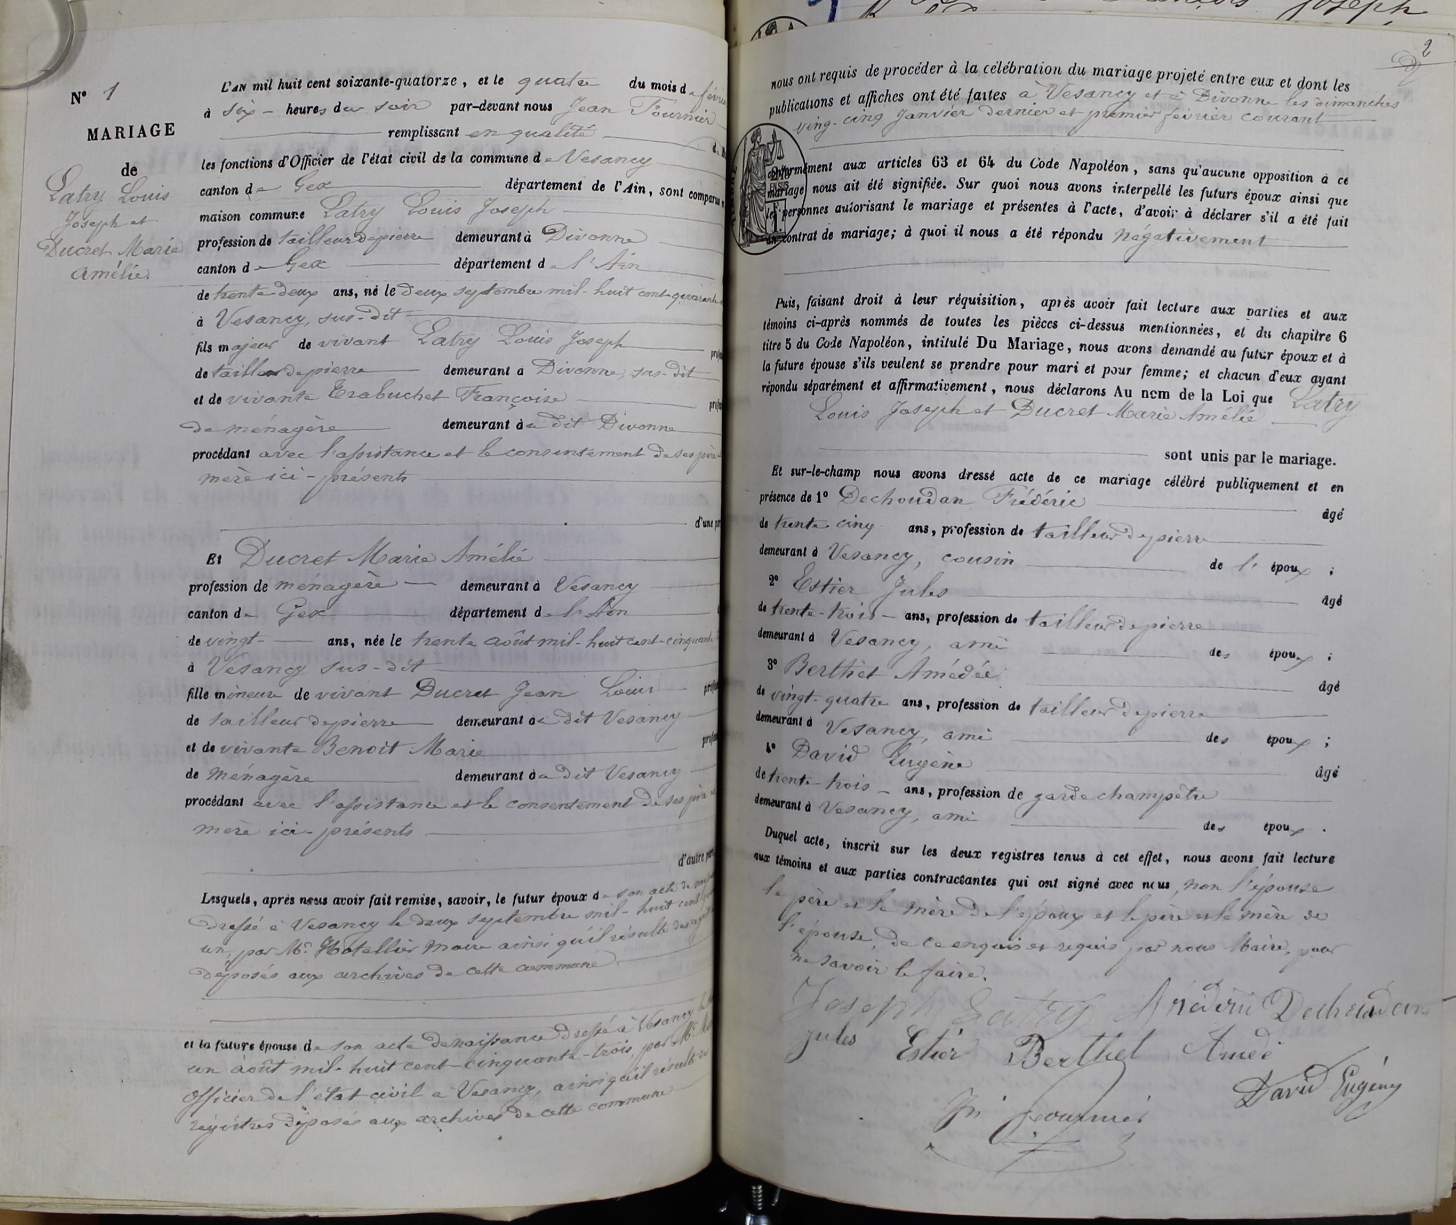 Joseph
N° 1
MARIAGE
de
Latry Louis
Joseph et
Ducret Marie
Amélie
L'AN mil huit cent soixante-quatorze, et le quatre du mois de
à six heures du soir par-devant nous Jean Fournier
remplissant en qualité
les fonctions d'Officier de l'état civil de la commune de Vesancy
canton de Gex département de l'Ain, sont comparus
maison commune Latry Louis Joseph
profession de tailleur de pierre demeurant à Divonne
canton de Gex département de l'Ain
de trente deux ans, né le Deux septembre mil-huit cent-quarante
à Vesancy, sus-dit
fils majeur de vivant Latry Louis Joseph
de tailleur de pierre demeurant à Divonne, sus-dit
et de vivante Erabuchet Françoise
de ménagère demeurant à dit Divonne
procédant avec l'assistance et le consentement de ses père
mère ici-présents
d'une part
Et Ducret Marie Amélie
profession de ménagère demeurant à Vesancy
canton de Gex département de l'Ain
de vingt ans, née le trente août mil-huit cent-cinquante
à Vesancy sus-dit
fille mineure de vivant Ducret Jean Louis
de tailleur de pierre demeurant à dit Vesancy
et de vivante Benoit Marie
de ménagère demeurant à dit Vesancy
procédant avec l'assistance et le consentement de ses père
mère ici-présents
d'autre part
Lesquels, après nous avoir fait remise, savoir, le futur époux de son acte de
dressé à Vesancy le deux septembre mil-huit cent
un, par Mr. Hotellier Maire ainsi qu'il résulte des
déposés aux archives de cette commune
et la future épouse de son acte de naissance dressé à Vesancy
un août mil-huit cent-cinquante-trois par Mr.
officier de l'état civil à Vesancy, ainsi qu'il résulte
régistres déposés aux archives de cette commune
2
nous ont requis de procéder à la célébration du mariage projeté entre eux et dont les
publications et affiches ont été faites à Vesancy et à Divonne les dimanches
ving-cinq Janvier dernier et premier février courant
Conformément aux articles 63 et 64 du Code Napoléon, sans qu'aucune opposition à ce
mariage nous ait été signifiée. Sur quoi nous avons interpellé les futurs époux ainsi que
les personnes autorisant le mariage et présentes à l'acte, d'avoir à déclarer s'il a été fait
un contrat de mariage; à quoi il nous a été répondu négativement
Puis, faisant droit à leur réquisition, après avoir fait lecture aux parties et aux
témoins ci-après nommés de toutes les pièces ci-dessus mentionnées, et du chapitre 6
titre 5 du Code Napoléon, intitulé Du Mariage, nous avons demandé au futur époux et à
la future épouse s'ils veulent se prendre pour mari et pour femme; et chacun d'eux ayant
répondu séparément et affirmativement, nous déclarons Au nom de la Loi que Latry
Louis Joseph et Ducret Marie Amélie
sont unis par le mariage.
Et sur-le-champ nous avons dressé acte de ce mariage célébré publiquement et en
présence de 1° Dechoudan Frédéric âgé
de trente cinq ans, profession de tailleur de pierre
demeurant à Vesancy, cousin de l' époux ;
2° Estier Jules âgé
de trente-trois ans, profession de tailleur de pierre
demeurant à Vesancy, ami des époux ;
3° Berthet Amédée âgé
de vingt-quatre ans, profession de tailleur de pierre
demeurant à Vesancy, ami des époux ;
4° David Eugène âgé
de trente-trois ans, profession de garde champêtre
demeurant à Vesancy, ami des époux .
Duquel acte, inscrit sur les deux registres tenus à cet effet, nous avons fait lecture
aux témoins et aux parties contractantes qui ont signé avec nous, non l'épouse
le père et la mère de l'époux et le père et la mère de
l'épouse, de ce enquis et requis par nous Maire, pour
ne savoir le faire.
Joseph Latry Frédéric Dechoudan
Jules Estier Berthet Amédé
David Eugène
Jn Fournier